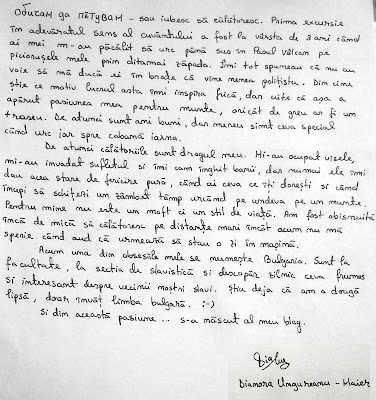 Обичам да пътувам - sau iubesc să călătoresc. Prima excursie
în adevăratul sens al cuvântului a fost la vârsta de 3 ani când
ai mei m-au păcălit să urc până sus în Pasul Vâlcan pe
picioarele mele prin ditamai zăpada. Îmi tot spuneau că nu au
voie să mă ducă ei în brațe că vine nenea polițistu. Din cine
știe ce motiv lucrul ăsta îmi inspira frică, dar uite că așa a
apărut pasiunea mea pentru munte, oricât de greu ar fi un
traseu. De atunci sunt ani buni, dar mereu simt ceva special
când urc iar spre cabană iarna.
De atunci călătoriile sunt dragul meu. Mi-au ocupat visele,
mi-au invadat sufletul și îmi cam înghit banii, dar numai ele îmi
dau acea stare de fericire pură, când ai ceva ce îți dorești și când
începi să schițezi un zâmbet tâmp urcând pe undeva pe un munte.
Pentru mine nu este un moft ci un stil de viață. Am fost obișnuită
încă de mică să călătoresc pe distanțe mari încât acum nu mă
sperie când aud că urmează să stau o zi în mașină.
Acum una din obsesiile mele se numește Bulgaria. Sunt la
facultate, la secția de slavistică și descopăr zilnic ceva frumos
și interesant despre vecinii noștri slavi. Știu deja că am a doua
lipsă, doar învăț limba bulgară. :-)
Și din această pasiune ... s-a născut al meu blog.
Dianora Ungureanu - Maier